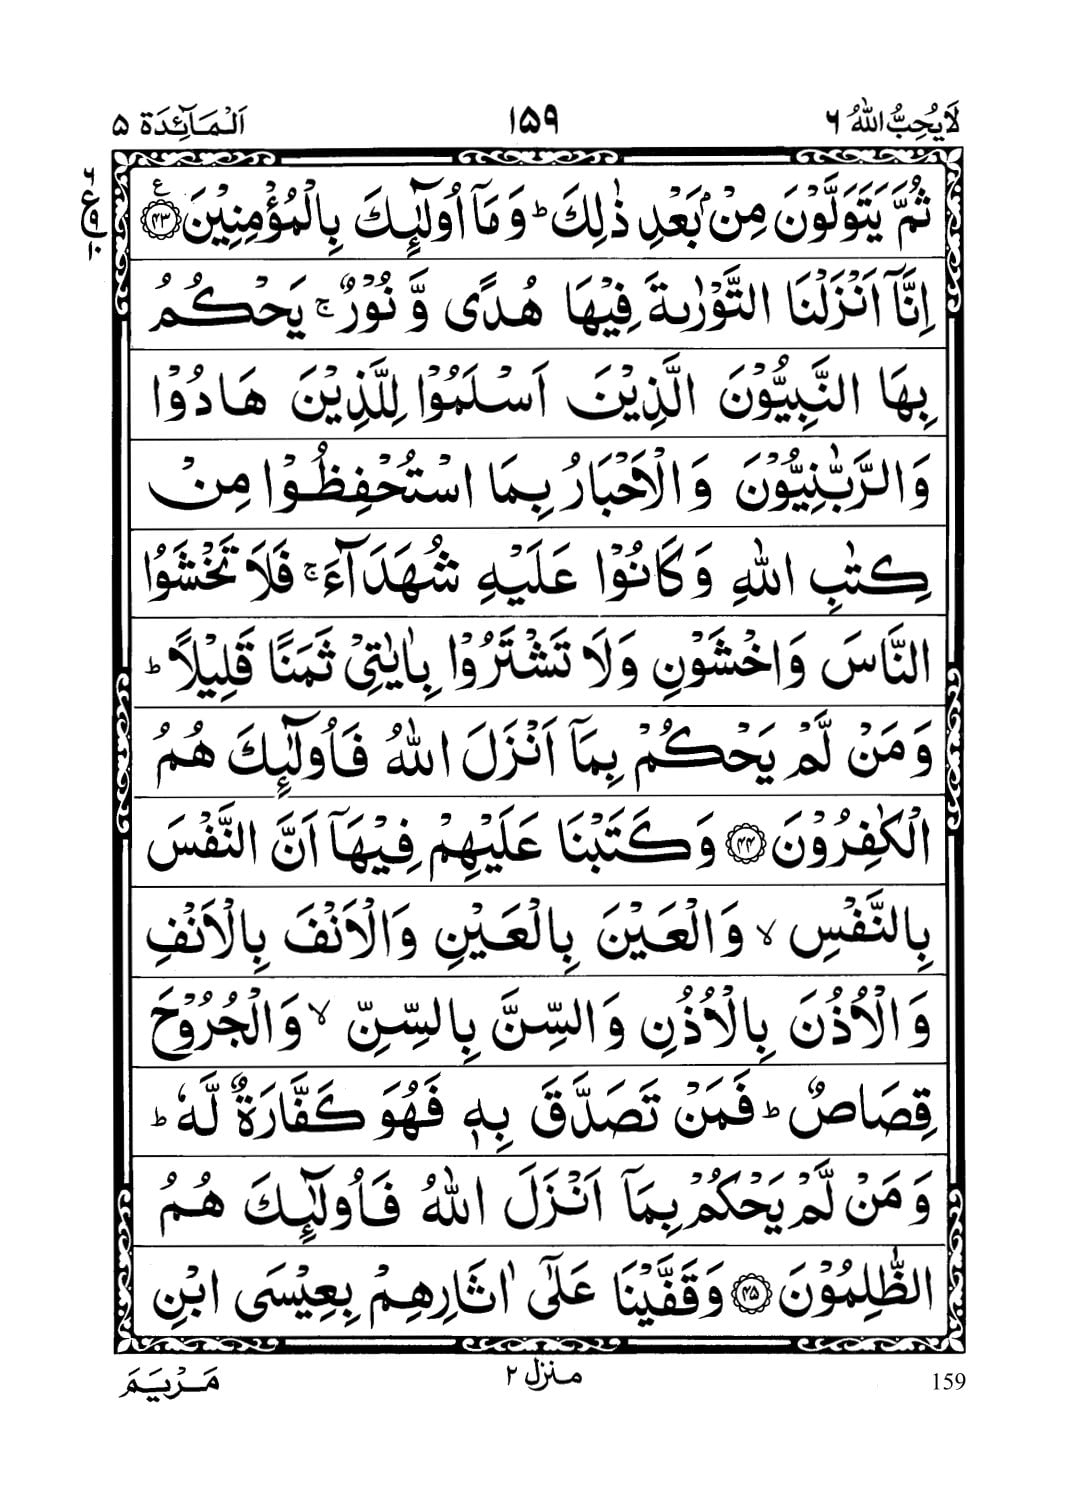 لَا يُحِبُّ اللّٰهُ ۶ ۱۵۹ اَلْمَآئِدَة ۵
ثُمَّ يَتَوَلَّوْنَ مِنْۢ بَعْدِ ذٰلِكَ ؕ وَ مَاۤ اُولٰٓئِكَ بِالْمُؤْمِنِيْنَ ۟ ﴿۴۳﴾ ع
۶ ع ۹ ۱۰
اِنَّاۤ اَنْزَلْنَا التَّوْرٰىةَ فِيْهَا هُدًى وَّ نُوْرٌ ۚ يَحْكُمُ
بِهَا النَّبِيُّوْنَ الَّذِيْنَ اَسْلَمُوْا لِلَّذِيْنَ هَادُوْا
وَ الرَّبّٰنِيُّوْنَ وَ الْاَحْبَارُ بِمَا اسْتُحْفِظُوْا مِنْ
كِتٰبِ اللّٰهِ وَ كَانُوْا عَلَيْهِ شُهَدَآءَ ۚ فَلَا تَخْشَوُا
النَّاسَ وَ اخْشَوْنِ وَ لَا تَشْتَرُوْا بِاٰيٰتِيْ ثَمَنًا قَلِيْلًا ؕ
وَ مَنْ لَّمْ يَحْكُمْ بِمَاۤ اَنْزَلَ اللّٰهُ فَاُولٰٓئِكَ هُمُ
الْكٰفِرُوْنَ ﴿۴۴﴾ وَ كَتَبْنَا عَلَيْهِمْ فِيْهَاۤ اَنَّ النَّفْسَ
بِالنَّفْسِ ۙ وَ الْعَيْنَ بِالْعَيْنِ وَ الْاَنْفَ بِالْاَنْفِ
وَ الْاُذُنَ بِالْاُذُنِ وَ السِّنَّ بِالسِّنِّ ۙ وَ الْجُرُوْحَ
قِصَاصٌ ؕ فَمَنْ تَصَدَّقَ بِهٖ فَهُوَ كَفَّارَةٌ لَّهٗ ؕ
وَ مَنْ لَّمْ يَحْكُمْ بِمَاۤ اَنْزَلَ اللّٰهُ فَاُولٰٓئِكَ هُمُ
الظّٰلِمُوْنَ ﴿۴۵﴾ وَ قَفَّيْنَا عَلٰۤى اٰثَارِهِمْ بِعِيْسَى ابْنِ
159 منزل ۲ مَرْيَمَ